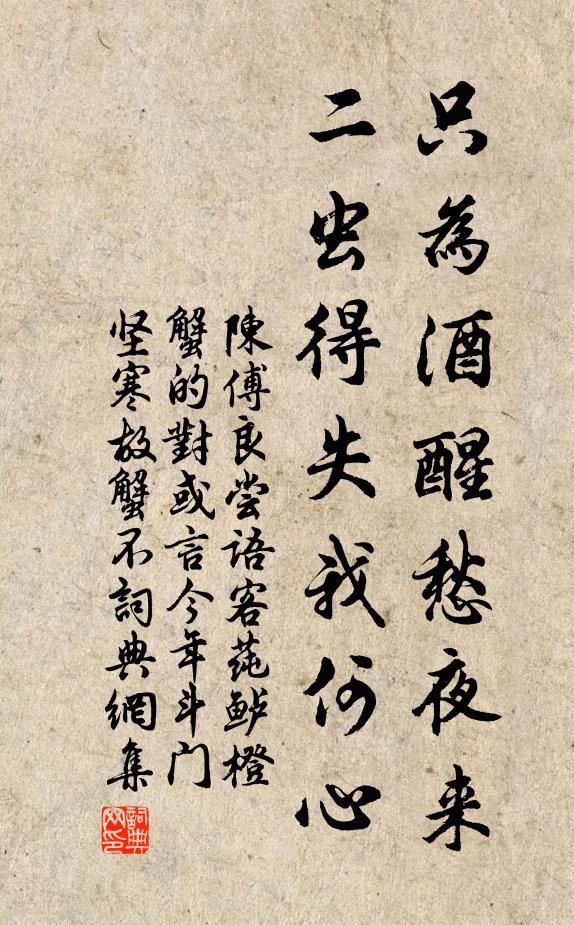 只為酒醒愁夜来
二虫得失我何心
陳傅良尝语客莼鲈橙
蟹的對或言今年斗门
坚寒故蟹不詞典網集
詞典
网印